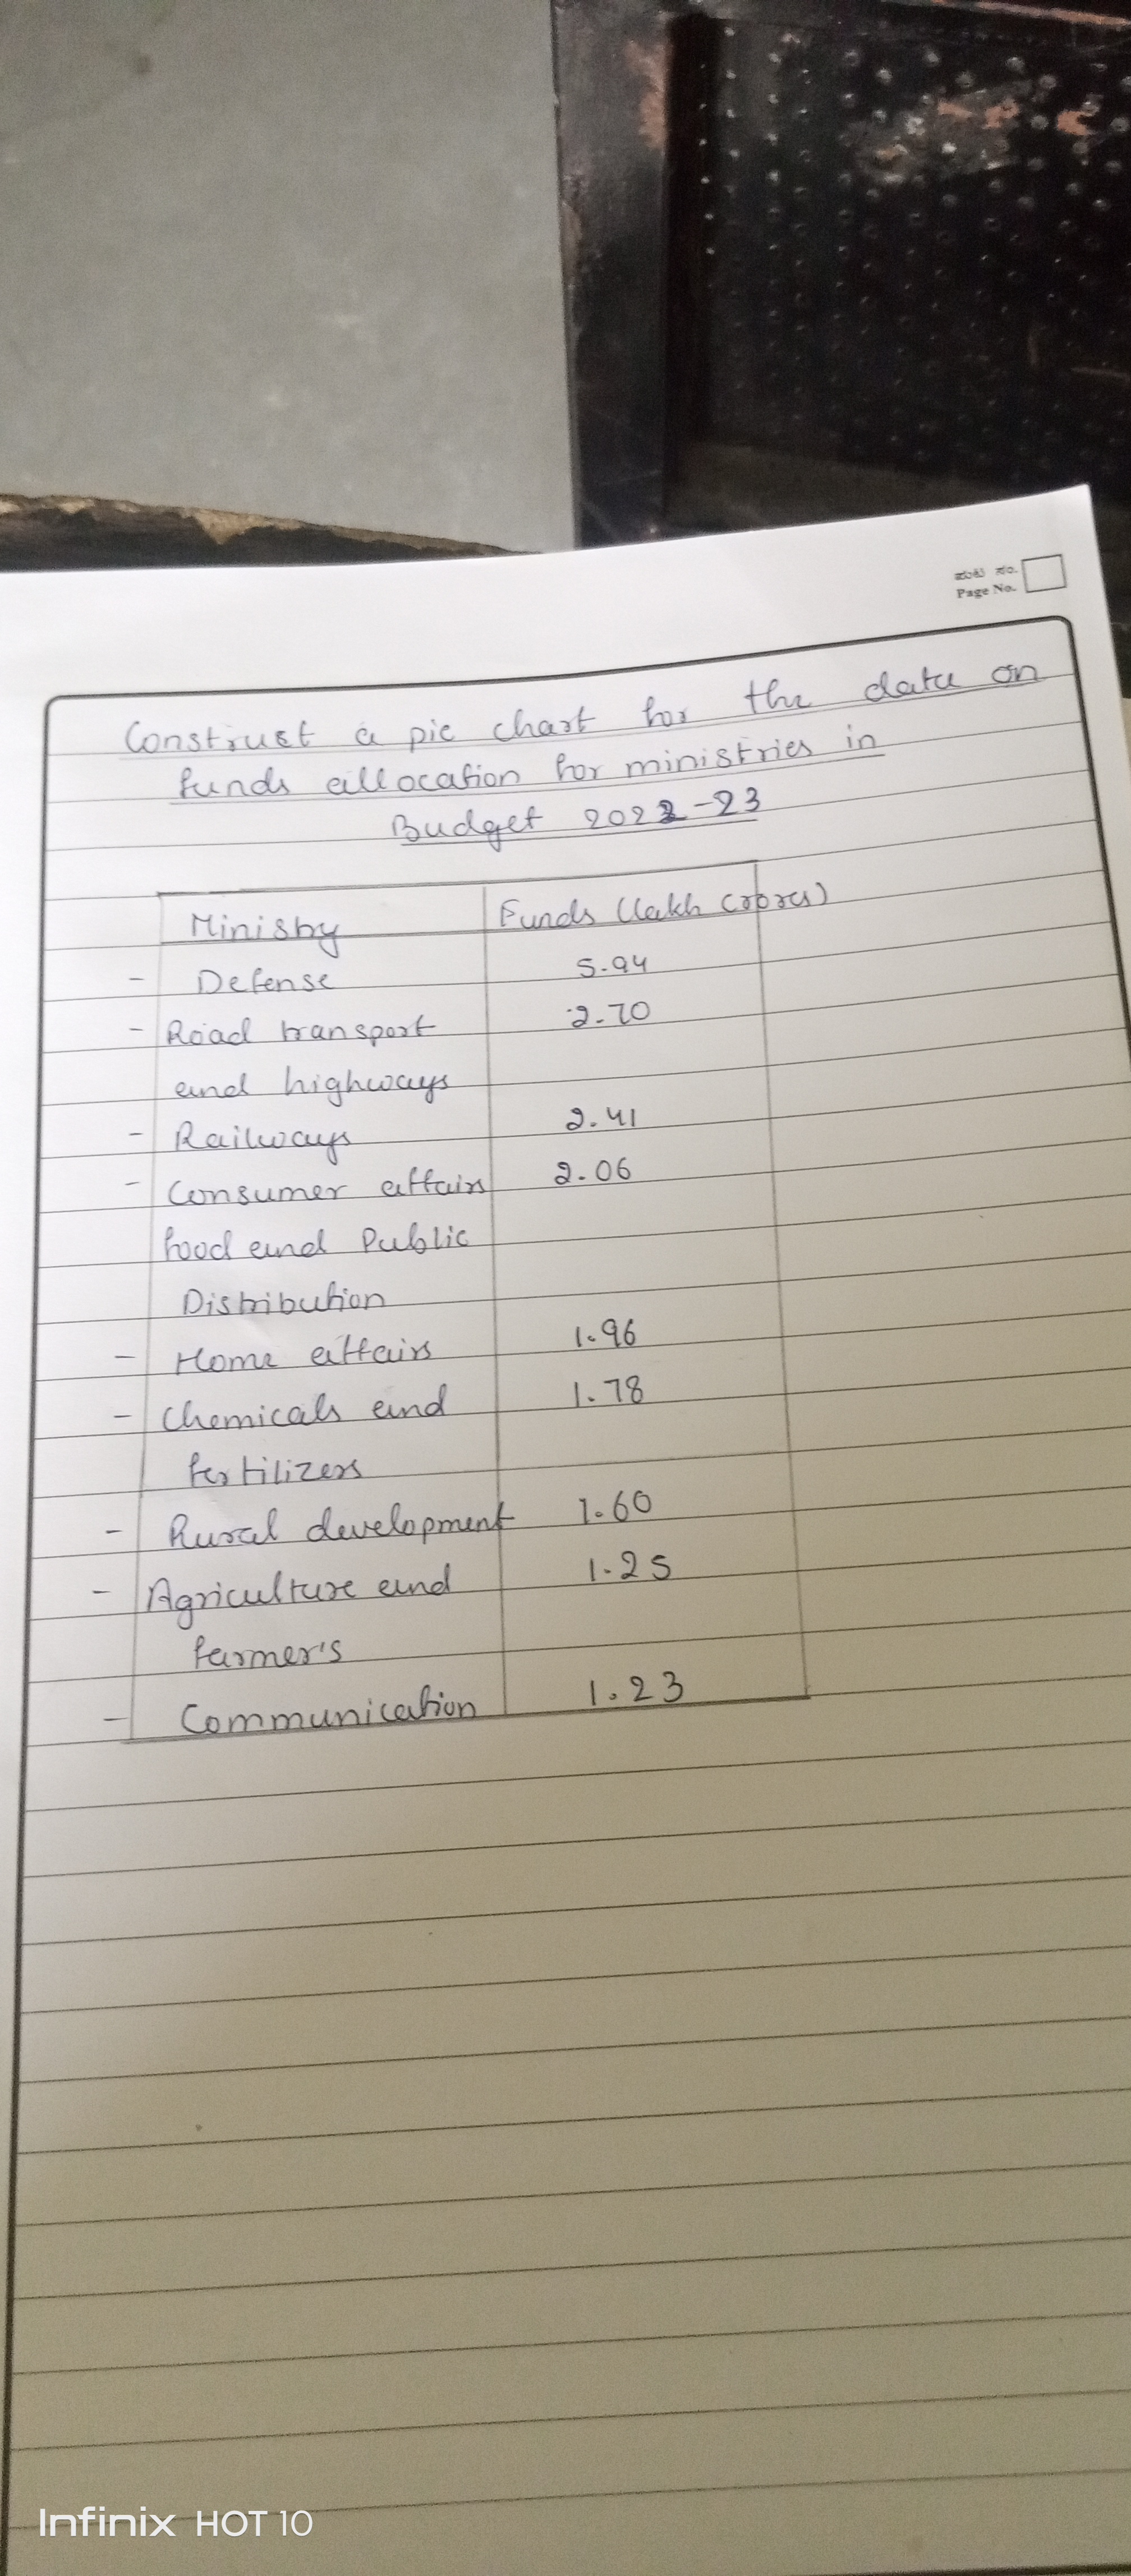 ಪುಟ ಸಂ.
Page No.
Construct a pie chart for the data on
funds allocation for ministries in
Budget 2022-23
Ministry Funds (lakh crores)
- Defense 5.94
- Road transport 2.70
and highways
- Railways 2.41
- Consumer affairs 2.06
food and Public
Distribution
- Home affairs 1.96
- Chemicals and 1.78
fertilizers
- Rural development 1.60
- Agriculture and 1.25
farmer's
- Communication 1.23
Infinix HOT 10